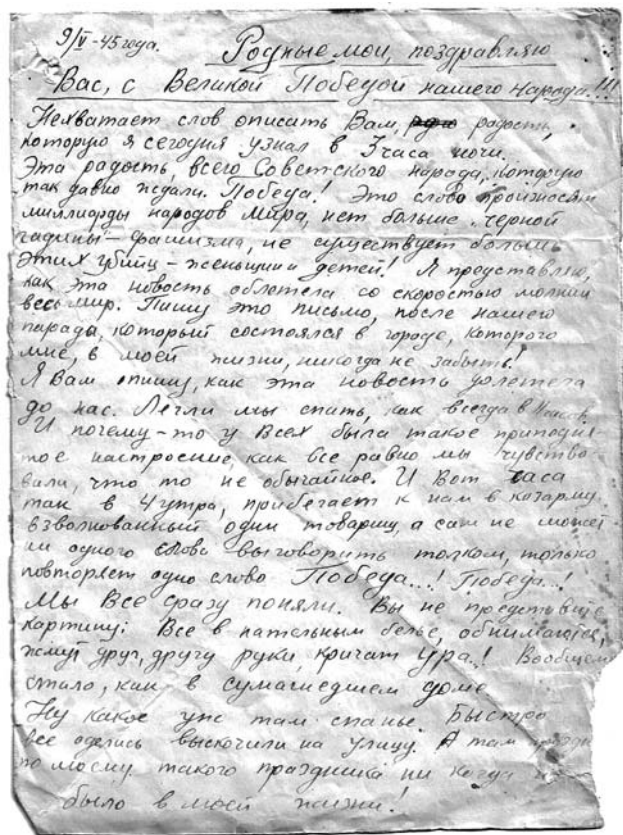 9/V-45 года. Родные мои, поздравляю
Вас, с Великой Победой нашего народа!!!
Нехватает слов описать Вам, радость,
которую я сегодня узнал в 3 часа ночи.
Эта радость, всего Советского народа, которую
так давно ждали. Победа! Это слово произносят
миллиарды народов мира, нет больше черной
гадины – фашизма, не существует больше
этих убийц – женьщин и детей! Я представляю,
как эта новость облетела со скоростью молнии
весь мир. Пишу это письмо, после нашего
парада, который состоялся в городе, которого
мне, в моей жизни, никогда не забыть!
Я Вам опишу, как эта новость долетела
до нас. Легли мы спать, как всегда в
И почему-то у Всех была такое приподня-
тое настроение, как все равно мы чувство-
вали, что то не обычайное. И Вот часа
так в 4 утра, прибегает к нам в казарму,
взволнованный один товарищ, а сам не может
ни одного слова выговорить толком, только
повторяет одно слово Победа...! Победа...!
Мы Все сразу поняли. Вы не представите
картину: Все в нательным белье, обнимаются,
жмут друг, другу руки, кричат ура.! Вообщем
стало, как в сумасшедшем доме
Ну какое уж там спанье. Быстро
все оделись выскочили на улицу. А там
по моему такого праздника ни когда не
было в моей жизни!